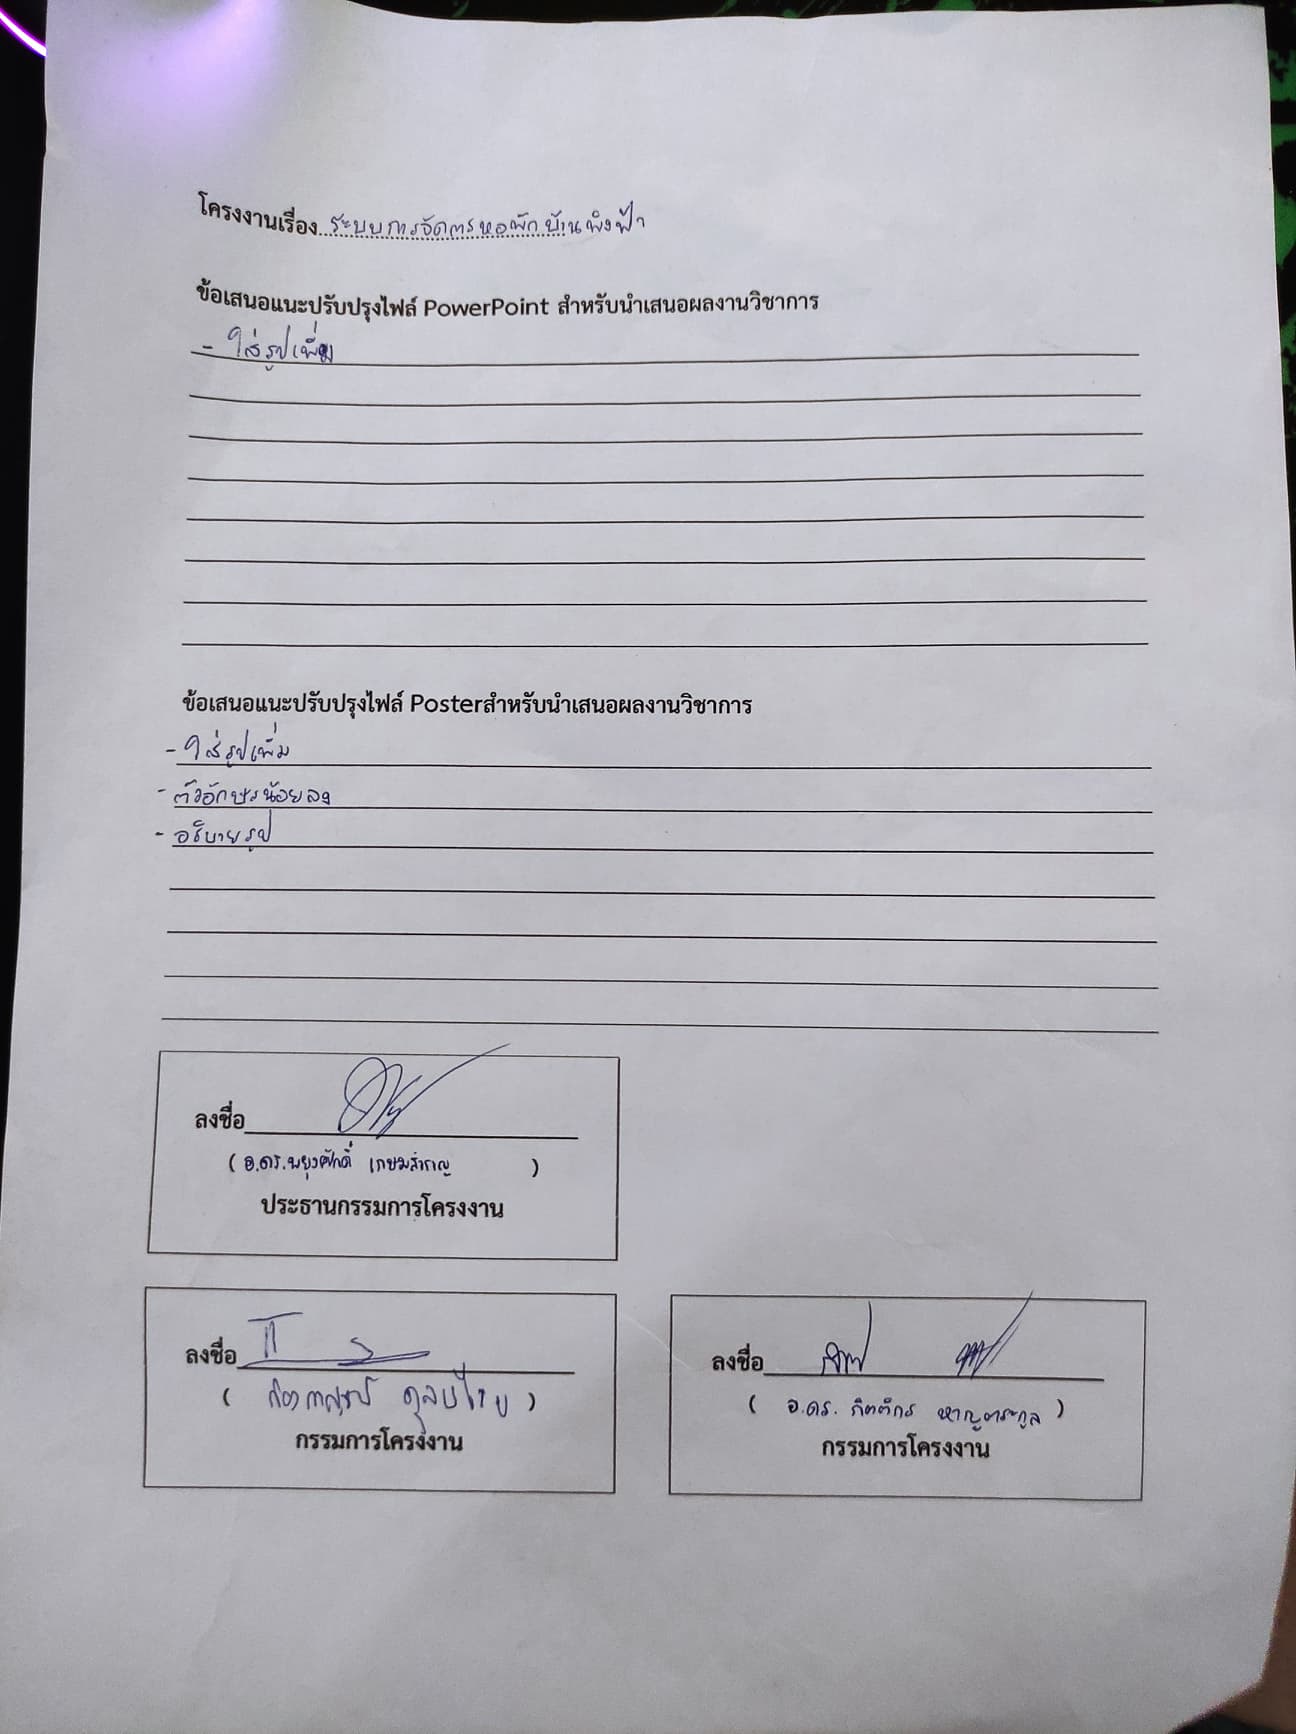 โครงงานเรื่อง ระบบการจัดการหอพักบ้านพิงฟ้า
ข้อเสนอแนะปรับปรุงไฟล์ PowerPoint สำหรับนำเสนอผลงานวิชาการ
- ใส่รูปเพิ่ม
ข้อเสนอแนะปรับปรุงไฟล์ Posterสำหรับนำเสนอผลงานวิชาการ
- ใส่รูปเพิ่ม
- ตัวอักษรน้อยลง
- อธิบายรูป
ลงชื่อ
( อ.ดร.พยุงศักดิ์ เกษมสำราญ )
ประธานกรรมการโครงงาน
ลงชื่อ
กรรมการโครงงาน
ลงชื่อ
( อ.ดร. กิตติกร หาญตระกูล )
กรรมการโครงงาน